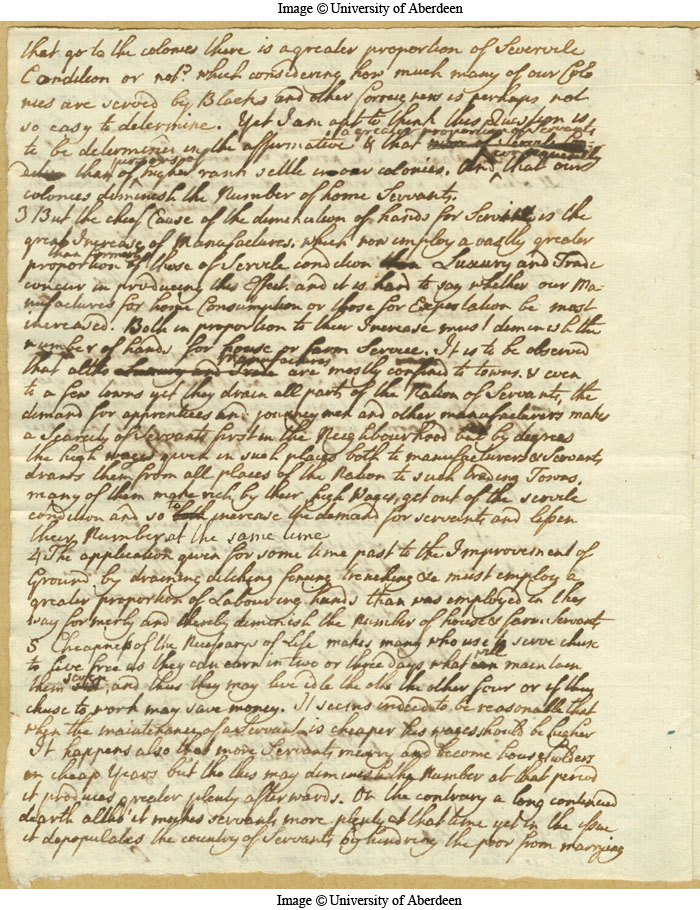 Image © University of Aberdeen
that go to the colonies there is a greater proportion of Servile
Condition or not? which considering how much many of our Colo
nies are served by Blacks and other is perhaps not
so easy to determine. Yet I am apt to think this Question is
a greater proportion of Servants
to be determined in the affirmative & that
consequently
persons of
than of higher rank settle in our colonies. And that our
colonies diminish the Number of home Servants.
3 But the chief Cause of the diminution of hands for Service is the
great Increase of Manufactures, which now employ a vastly greater
than formerly
proportion of those of Servile condition Luxury and Trade
concur in producing this Effect. and it is hard to say whether our Ma-
nufactures for home Consumption or those for Exportation be most
increased. Both in proportion to their Increase must diminish the
number of hands for house or farm Service. It is to be observed
Manufactures
that altho Luxury and Trade are mostly confined to towns. & even
to a few towns yet they drain all parts of the Nation of Servants, the
demand for apprentices and journeymen and other manufacturers makes
a scarcity of Servants first in the Neighbourhood but by degrees
the high wages given in such places both to manufacturers & Servants
draws them from all places of the Nation to such trading Towns.
many of them make rich by their high Wages, get out of the servile
to
condition and so increase the demand for servants and lessen
their Number at the same time
4 The application given for some time past to the Improvement of
Ground by draining ditching fencing trenching &c must employ a
greater proportion of Labouring hands than was employed in this
way formerly and thereby diminish the Number of house & farm Servants
5 Cheapness of the Necessarys of Life makes many who use to serve chuse
will
to live free as they can earn in two or three days what maintain
seven
them , and thus they may live idle the the other four or if they
chuse to work may save money. It seems indeed to be reasonable that
when the maintenance of a Servant is cheaper his wages should be higher
It happens also that more Servants marry and become householders
in cheap Years but tho this may diminish the Number at that period
it produces greater plenty afterwards. On the contrary a long continued
dearth altho it makes servants more plenty at that time yet in the issue
it depopulates the country of Servants by hindring the poor from marrying
Image © University of Aberdeen